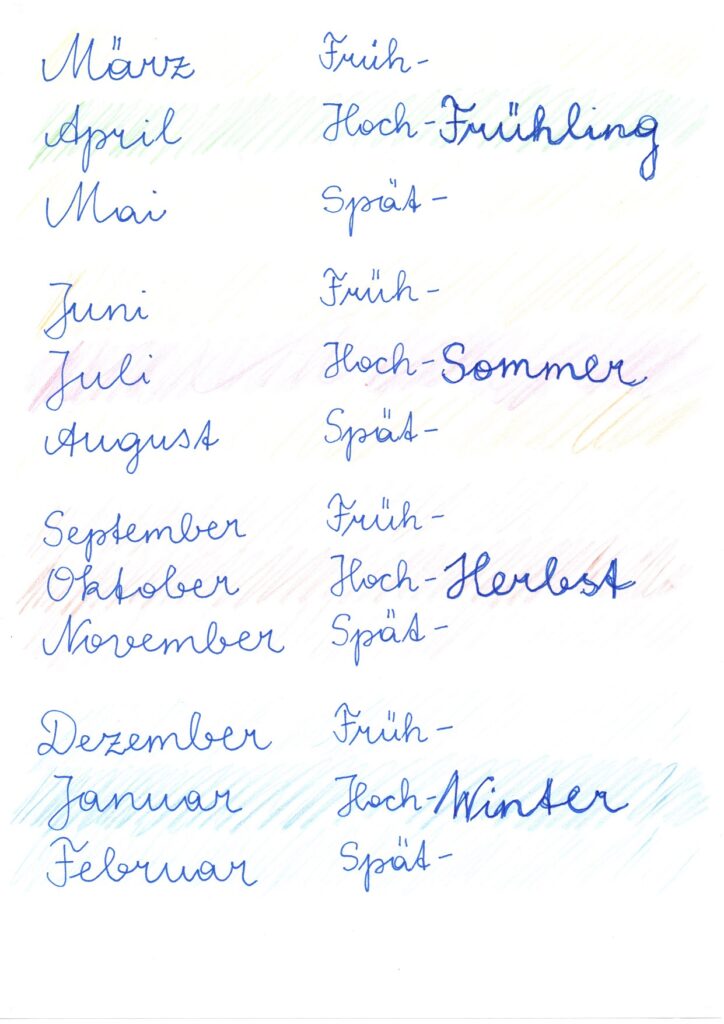 März Früh-
April Hoch-Frühling
Mai Spät-
Juni Früh-
Juli Hoch-Sommer
August Spät-
September Früh-
Oktober Hoch-Herbst
November Spät-
Dezember Früh-
Januar Hoch-Winter
Februar Spät-